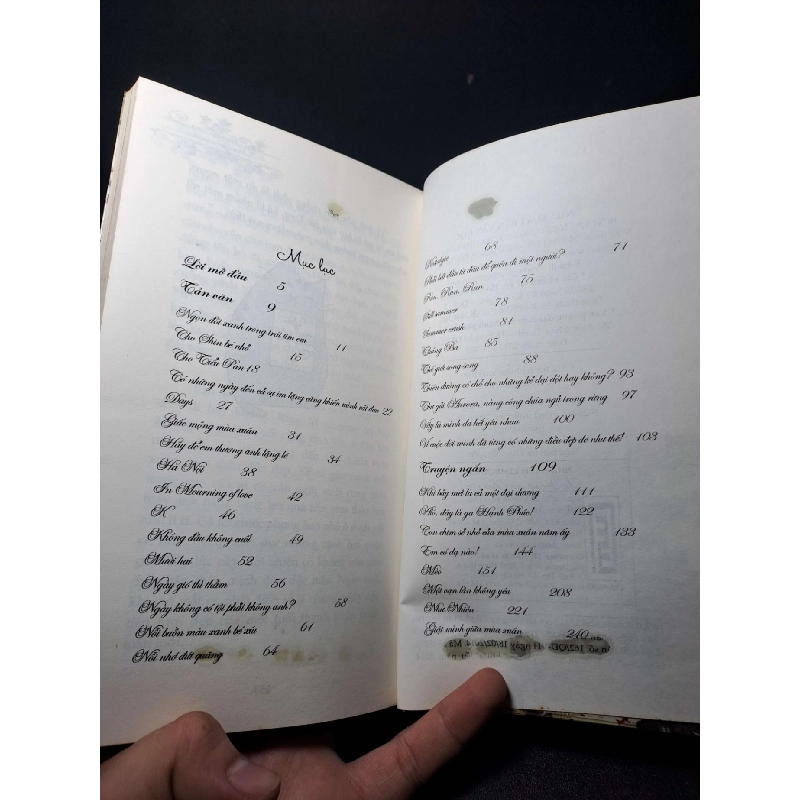 Mục lục
Lời mở đầu 5
Tản văn 9
Ngọn đồi xanh trong trái tim em 11
Cho Shin bé nhỏ 15
Cho Tiểu Pàn 18
Có những ngày đến cả sự im lặng cũng khiến mình rất đau 22
Days 27
Giấc mộng mùa xuân 31
Hãy để em thương anh lặng lẽ 34
Hà Nội 38
In Mourning of love 42
K 46
Không đầu không cuối 49
Mười hai 52
Ngày gió thì thầm 56
Ngày không có tội phải không anh? 58
Nỗi buồn màu xanh bé xíu 61
Nỗi nhớ đứt quãng 64
Nostalgie 68
Phải bắt đầu từ đâu để quên đi một người? 71
Run, Run, Run 75
Still summer 78
Summer crush 81
Thằng Ba 85
Thế giới song song 88
Thiên đường có chỗ cho những kẻ dại dột hay không? 93
Thư gửi Aurora, nàng công chúa ngủ trong rừng 97
Vậy là mình đã hết yêu nhau 100
Vì cuộc đời mình đã từng có những điều đẹp đẽ như thế! 103
Truyện ngắn 109
Khi bầy mơ là cả một đại dương 111
Ho, đây là ga Hạnh Phúc! 122
Con chim sẻ nhỏ của mùa xuân năm ấy 133
Em có dạ nào! 144
Mèo 151
Một vạn lần không yêu 208
Nhữ Nhiên 221
Giời mình giữa mùa xuân 240